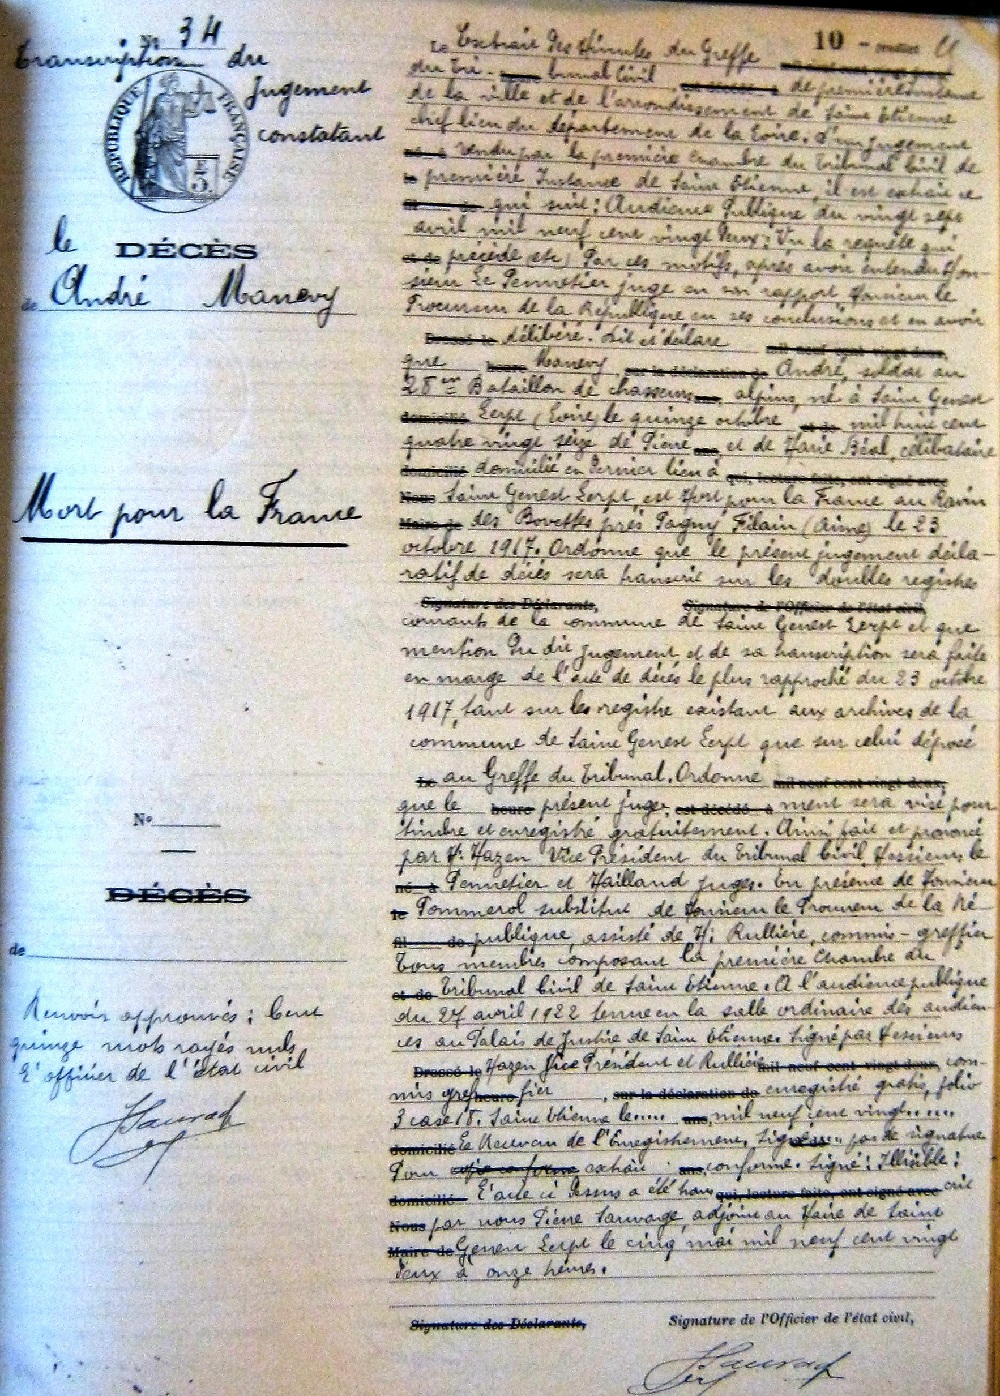 N° 34
Transcription du
Jugement
constatant
RÉPUBLIQUE FRANÇAISE
5
le
DÉCÈS
de André Manevy
Mort pour la France
N°
DÉCÈS
de
Renvois approuvés : Cent
quinze mots rayés nuls
L'officier de l'état civil
10 - feuillet
Le Extrait des Minutes du Greffe
du Tri- bunal Civil de première instance
de la ville et de l'arrondissement de Saint Etienne
chef lieu du département de la Loire. d'un jugement
rendu par la première Chambre du Tribunal Civil de
le première Instance de Saint Etienne, il est extrait ce
fil de qui suit : Audience Publique du vingt sept
avril mil neuf cent vingt deux : Vu la requête qui
et de précède (etc) Par ces motifs, après avoir entendu Mon-
sieur Le Pennetier juge en son rapport Monsieur le
Procureur de la République en ses conclusions et en avoir
Dressé le délibéré. Dit et déclare mil neuf cent vingt deux,
que heure Manevy sur la déclaration de André, soldat au
28me Bataillon de chasseurs ans, alpins, né à Saint Genest
domicilié Lerpt (Loire) le quinze octobre et de mil huit cent
quatre vingt seize de Pierre ans, et de Marie Béal, célibataire
domicilié domicilié en dernier lieu à qui, lecture faite, ont signé avec
Nous Saint Genest Lerpt est Mort pour la France au Ravin
Maire de des Bovettes près Pargny Filain (Aisne) le 23
octobre 1917. Ordonne que le présent jugement décla-
ratif de décès sera transcrit sur les doubles registres
Signature des Déclarants, Signature de l'Officier de l'état civil,
courants de la commune de Saint Genest Lerpt et que
mention du dit jugement et de sa transcription sera faite
en marge de l'acte de décès le plus rapproché du 23 octobre
1917, tant sur les registre existant aux archives de la
commune de Saint Genest Lerpt que sur celui déposé
Le au Greffe du Tribunal. Ordonne mil neuf cent vingt deux,
que le heure présent juge- est décédé à ment sera visé pour
timbre et enregistré gratuitement. Ainsi fait et prononcé
par M. Hazen Vice Président du Tribunal Civil Messieurs le
né à Pennetier et Mailland juges. En présence de Monsieur
le Pommerol substitut de Monsieur le Procureur de la Ré-
fil de publique, assisté de M. Rullière, commis-greffier
Tous membres composant la première Chambre du
et de Tribunal Civil de Saint Etienne. A l'audience publique
du 27 avril 1922 tenue en la salle ordinaire des audien-
ces au Palais de Justice de Saint Etienne. Signé par Messieurs
Dressé le Hazen Vice Président et Rullière mil neuf cent vingt deux, com-
mis gref heure fier , sur la déclaration de enregistré gratis, folio
3 case 18. Saint Etienne le..... ans, mil neuf cent vingt.....
domicilié Le Receveur de l'Enregistrement. Signé..... pas de signature
Pour copie conforme extrait ans, conforme. Signé : Illisible :
domicilié L'acte ci dessus a été trans qui, lecture faite, ont signé avec crit
Nous par nous Pierre Sauvage, adjoint au Maire de Saint
Maire de Genest Lerpt le cinq mai mil neuf cent vingt
deux à onze heures.
Signature des Déclarants, Signature de l'Officier de l'état civil,